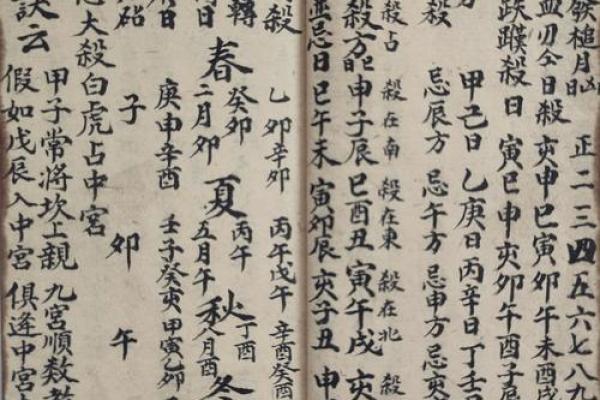 槌月凶日 正二三四五六七八九
血刃公日殺 亥申巳寅卯午未酉戌
跌蹼殺日 寅巳申亥卯午酉子辰
甲己日 乙庚日 丙辛日 丁壬
殺 忌辰方 忌午方 忌申方 忌亥
殺占 殺在南 殺在東 殺在北 殺
殺方 申子辰 巳酉丑 寅午戌 亥
並忌日 巳午未 寅卯辰 亥子丑 申
殺 乙卯辛卯 丙午戊午 辛酉癸酉
轉 春 癸卯 二月卯 夏 丙午 五月午 秋 丁酉 八月酉 冬
日 庚申辛酉 壬子癸亥 甲寅乙卯
砧 子 卯 午
大殺白虎占中宮
甲子常將坎上親 九宮順数
訣云 假如戊辰入中宮 俱逢中宮